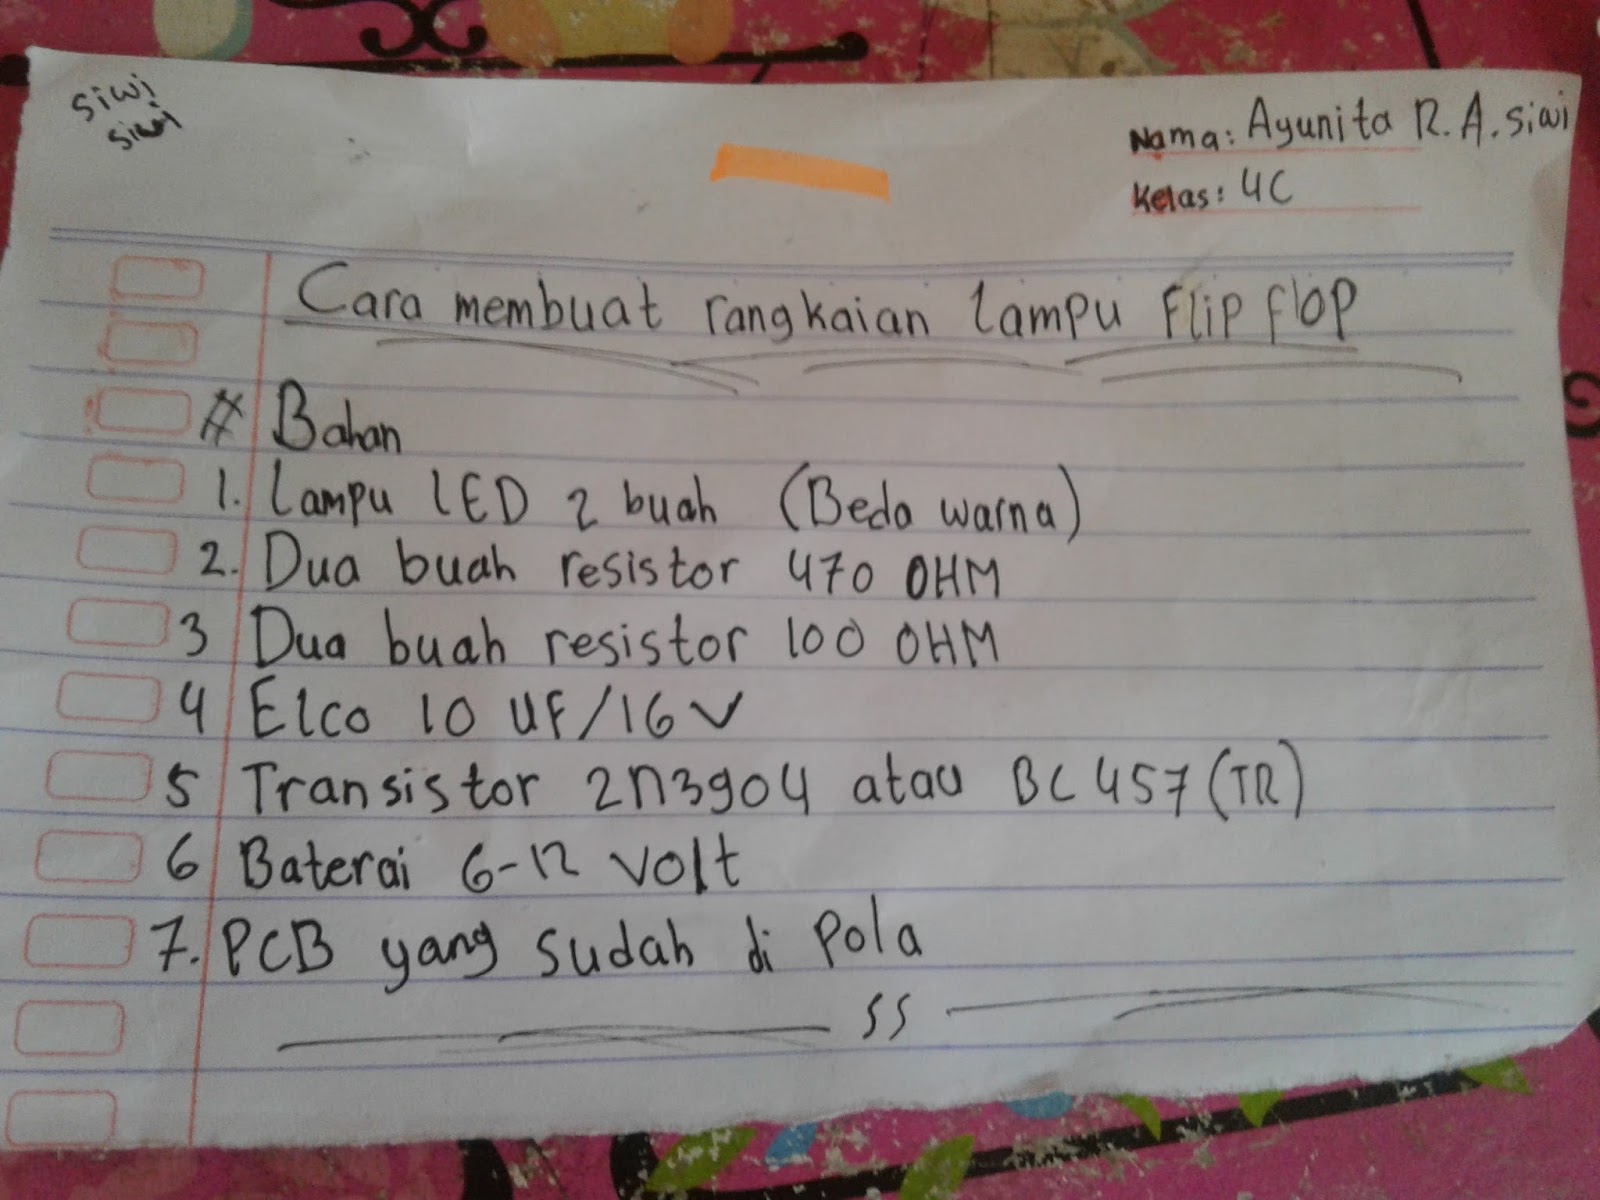 siwi
siwi
Nama: Ayunita R. A. siwi
Kelas: 4C
Cara membuat rangkaian lampu Flip flop
# Bahan
1. Lampu LED 2 buah (Beda warna)
2. Dua buah resistor 470 OHM
3 Dua buah resistor 100 OHM
4 Elco 10 UF/16 V
5 Transistor 2n3904 atau BC 457 (TR)
6 Baterai 6-12 Volt
7. PCB yang sudah di Pola
SS